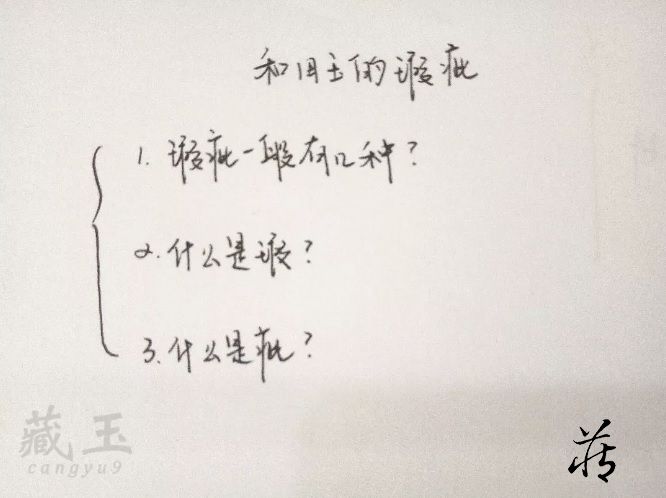 和田玉的瑕疵
1. 瑕疵一般有几种?
2. 什么是瑕?
3. 什么是疵?
藏玉
cangyu9